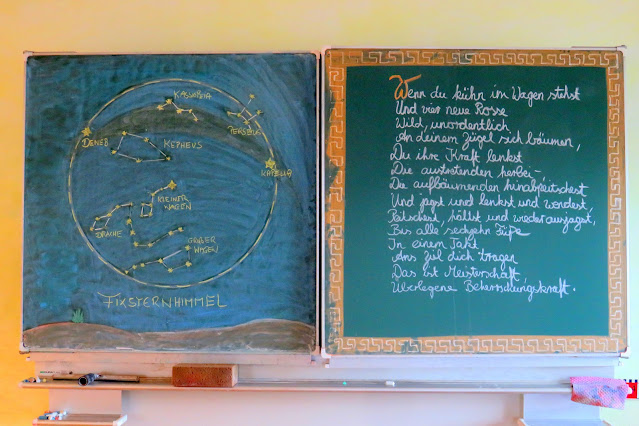 KASSIOPEIA
PERSEUS
DENEB
KEPHEUS
KAPELLA
KLEINER
WAGEN
DRACHE
GROßER
WAGEN
FIXSTERNHIMMEL
Wenn du kühn im Wagen stehst
Und vier neue Rosse
Wild, unordentlich
An deinem Zügel sich bäumen,
Du ihre Kraft lenkst
Die austretenden herbei –
Die aufbäumenden hinabpeitschest
Und jagst und lenkst und wendest,
Peitschest, hältst und wieder ausjagst,
Bis alle sechzehn Füße
In einem Takt
Ans Ziel dich tragen
Das ist Meisterschaft,
Überlegene Beherrschungskraft.